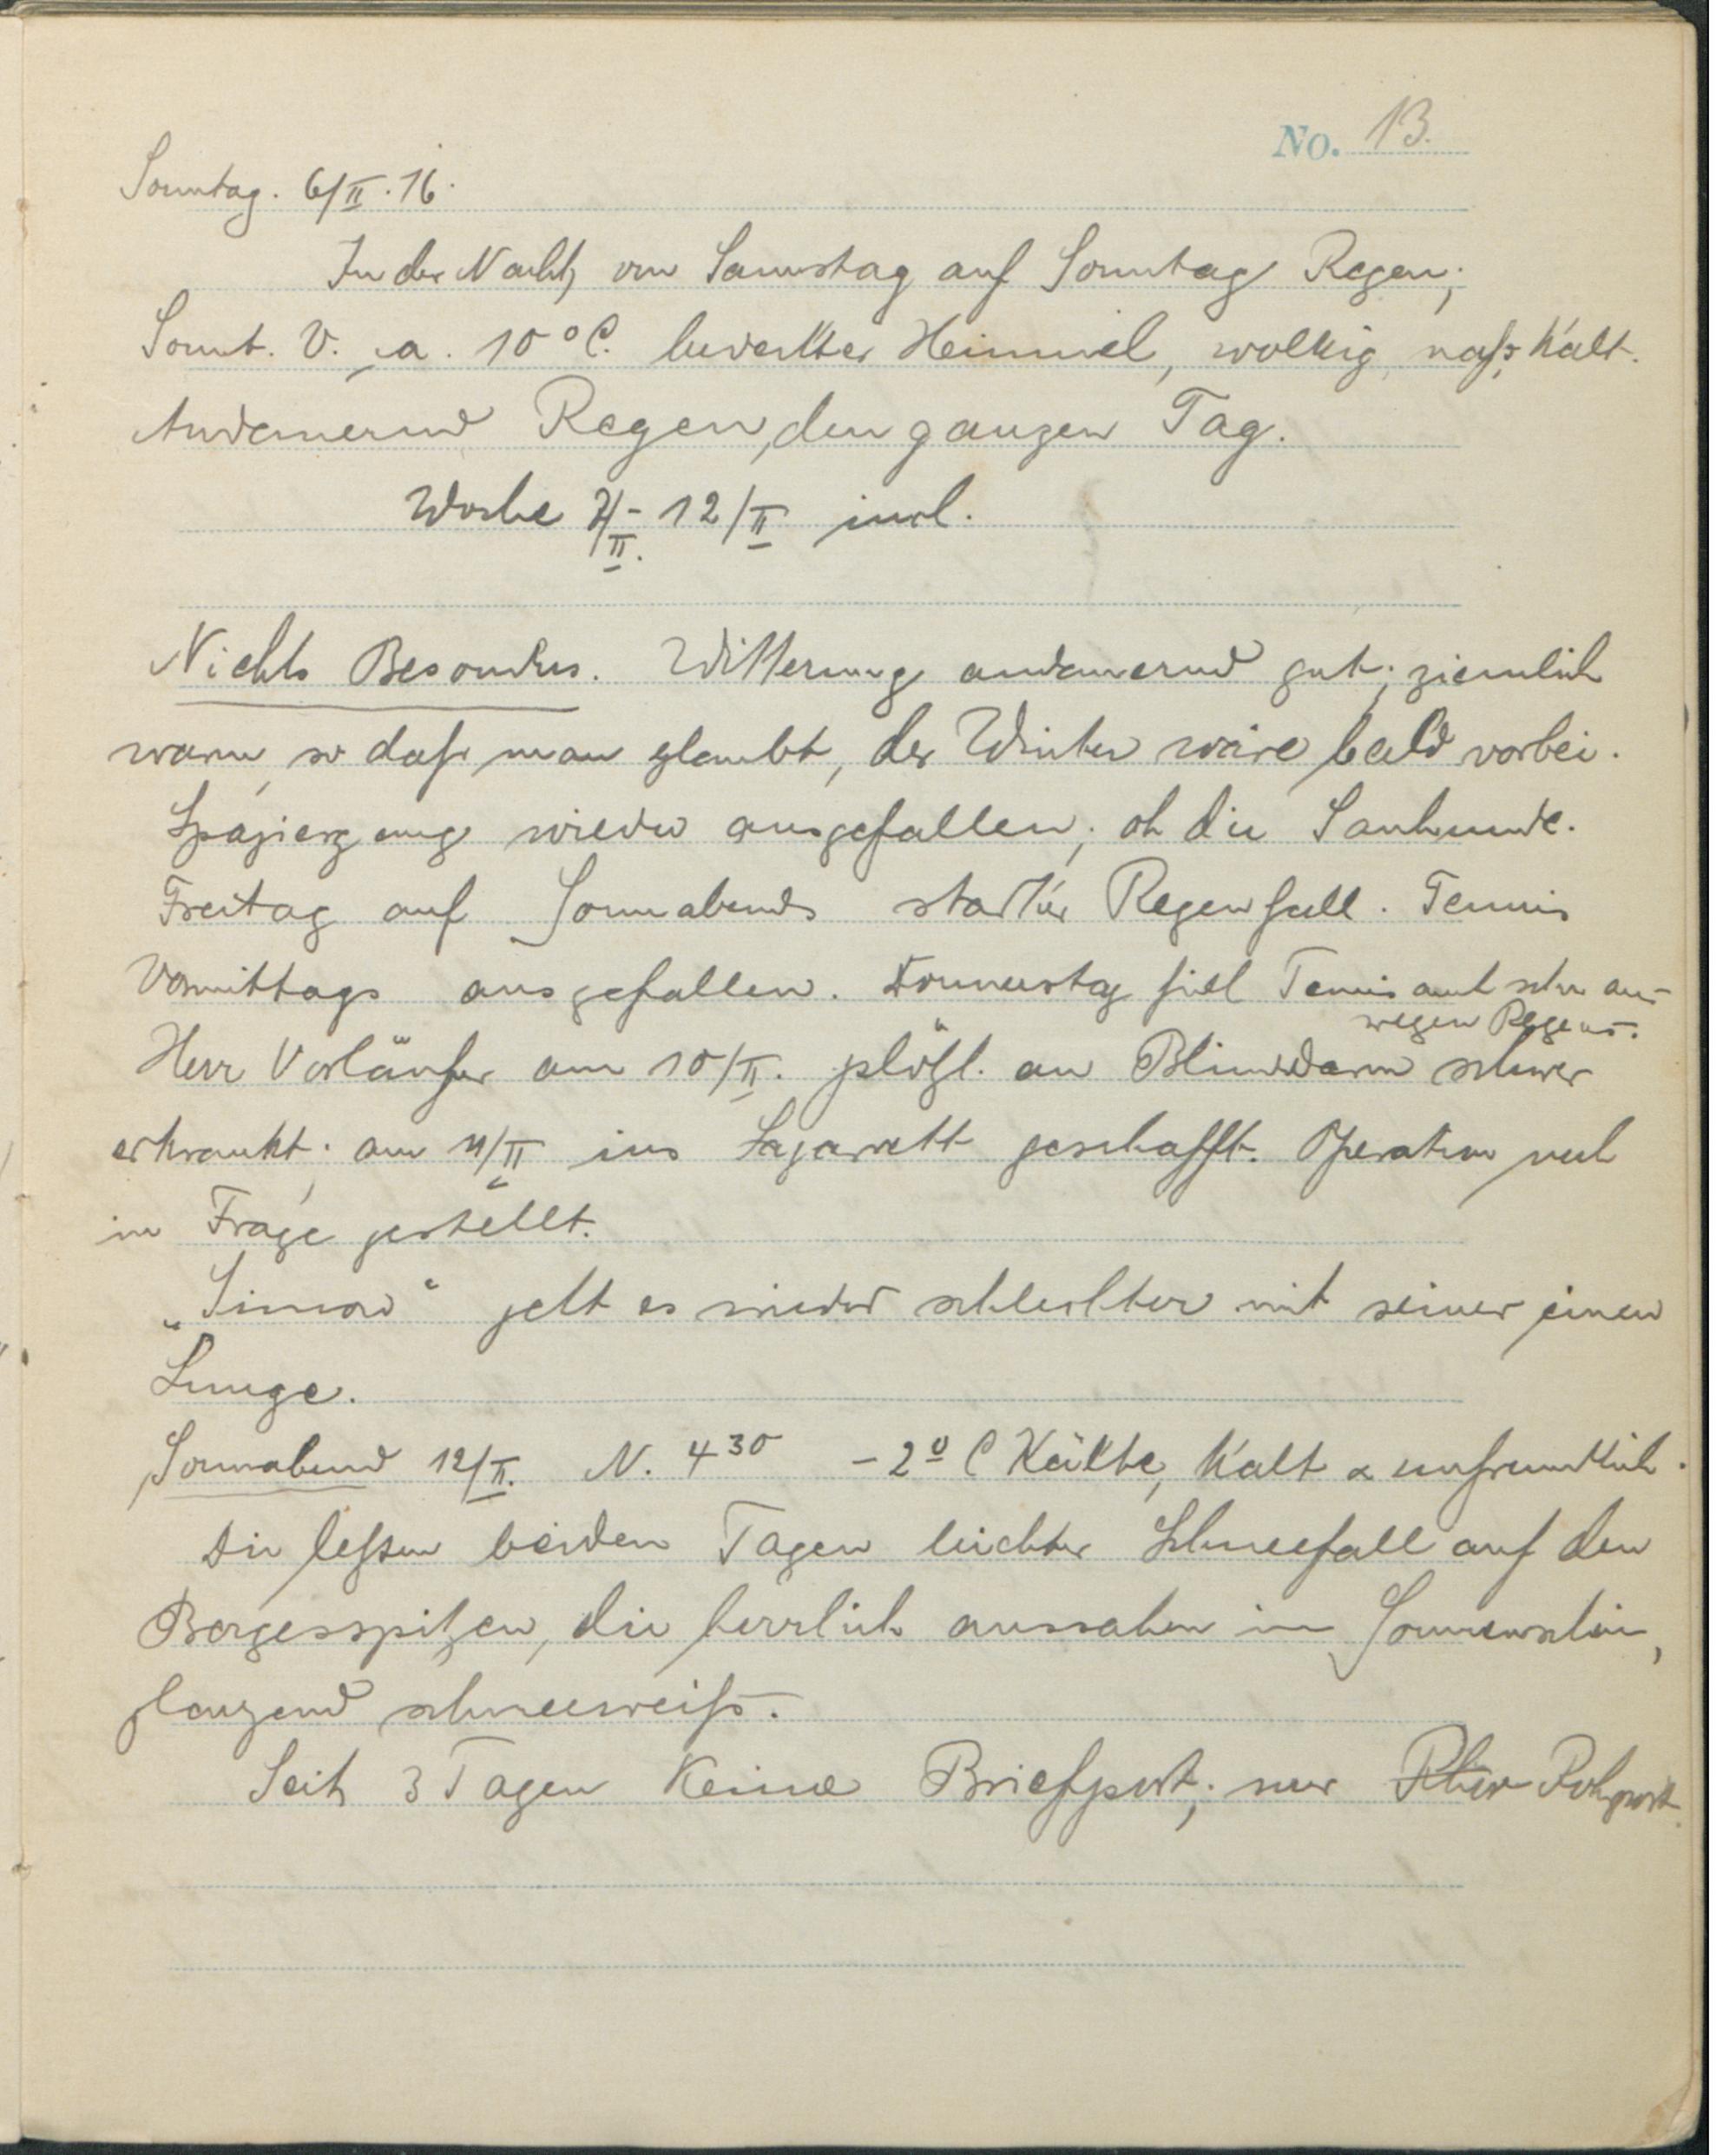 No. 13.
Sonntag. 6/II.16.
In der Nacht von Samstag auf Sonntag Regen;
Sonnt. V. ca. 10°C. bedeckter Himmel, wolkig, naß, kalt.
Andauernd Regen, den ganzen Tag.
Woche 7/II. - 12/II incl.
Nichts Besondres. Witterung andauernd gut; ziemlich
warm, so daß man glaubt, der Winter wäre bald vorbei.
Spaziergang wieder ausgefallen; oh die Sauhunde.
Freitag auf Sonnabends starker Regenfall. Tennis
Vormittags ausgefallen. Donnerstag fiel Tennis auch schon aus
wegen Regens.
Herr Vorläufer am 10/II. plötzl. an Blinddarm schwer
erkrankt; am 11/II ins Lazarett geschafft. Operation noch
in Frage gestellt.
„Simon“ geht es wieder schlechter mit seiner einen
Lunge.
Sonnabend 12/II. N. 4³⁰ -2° C Kälte, kalt & unfreundlich.
Die letzten beiden Tagen leichter Schneefall auf den
Bergesspitzen, die herrlich aussahen im Sonnenschein,
glanzend schneeweiß.
Seit 3 Tagen keine Briefpost; nur Rohrpost.